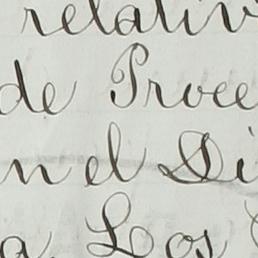 relativ
de Proce
n el Di
a Los